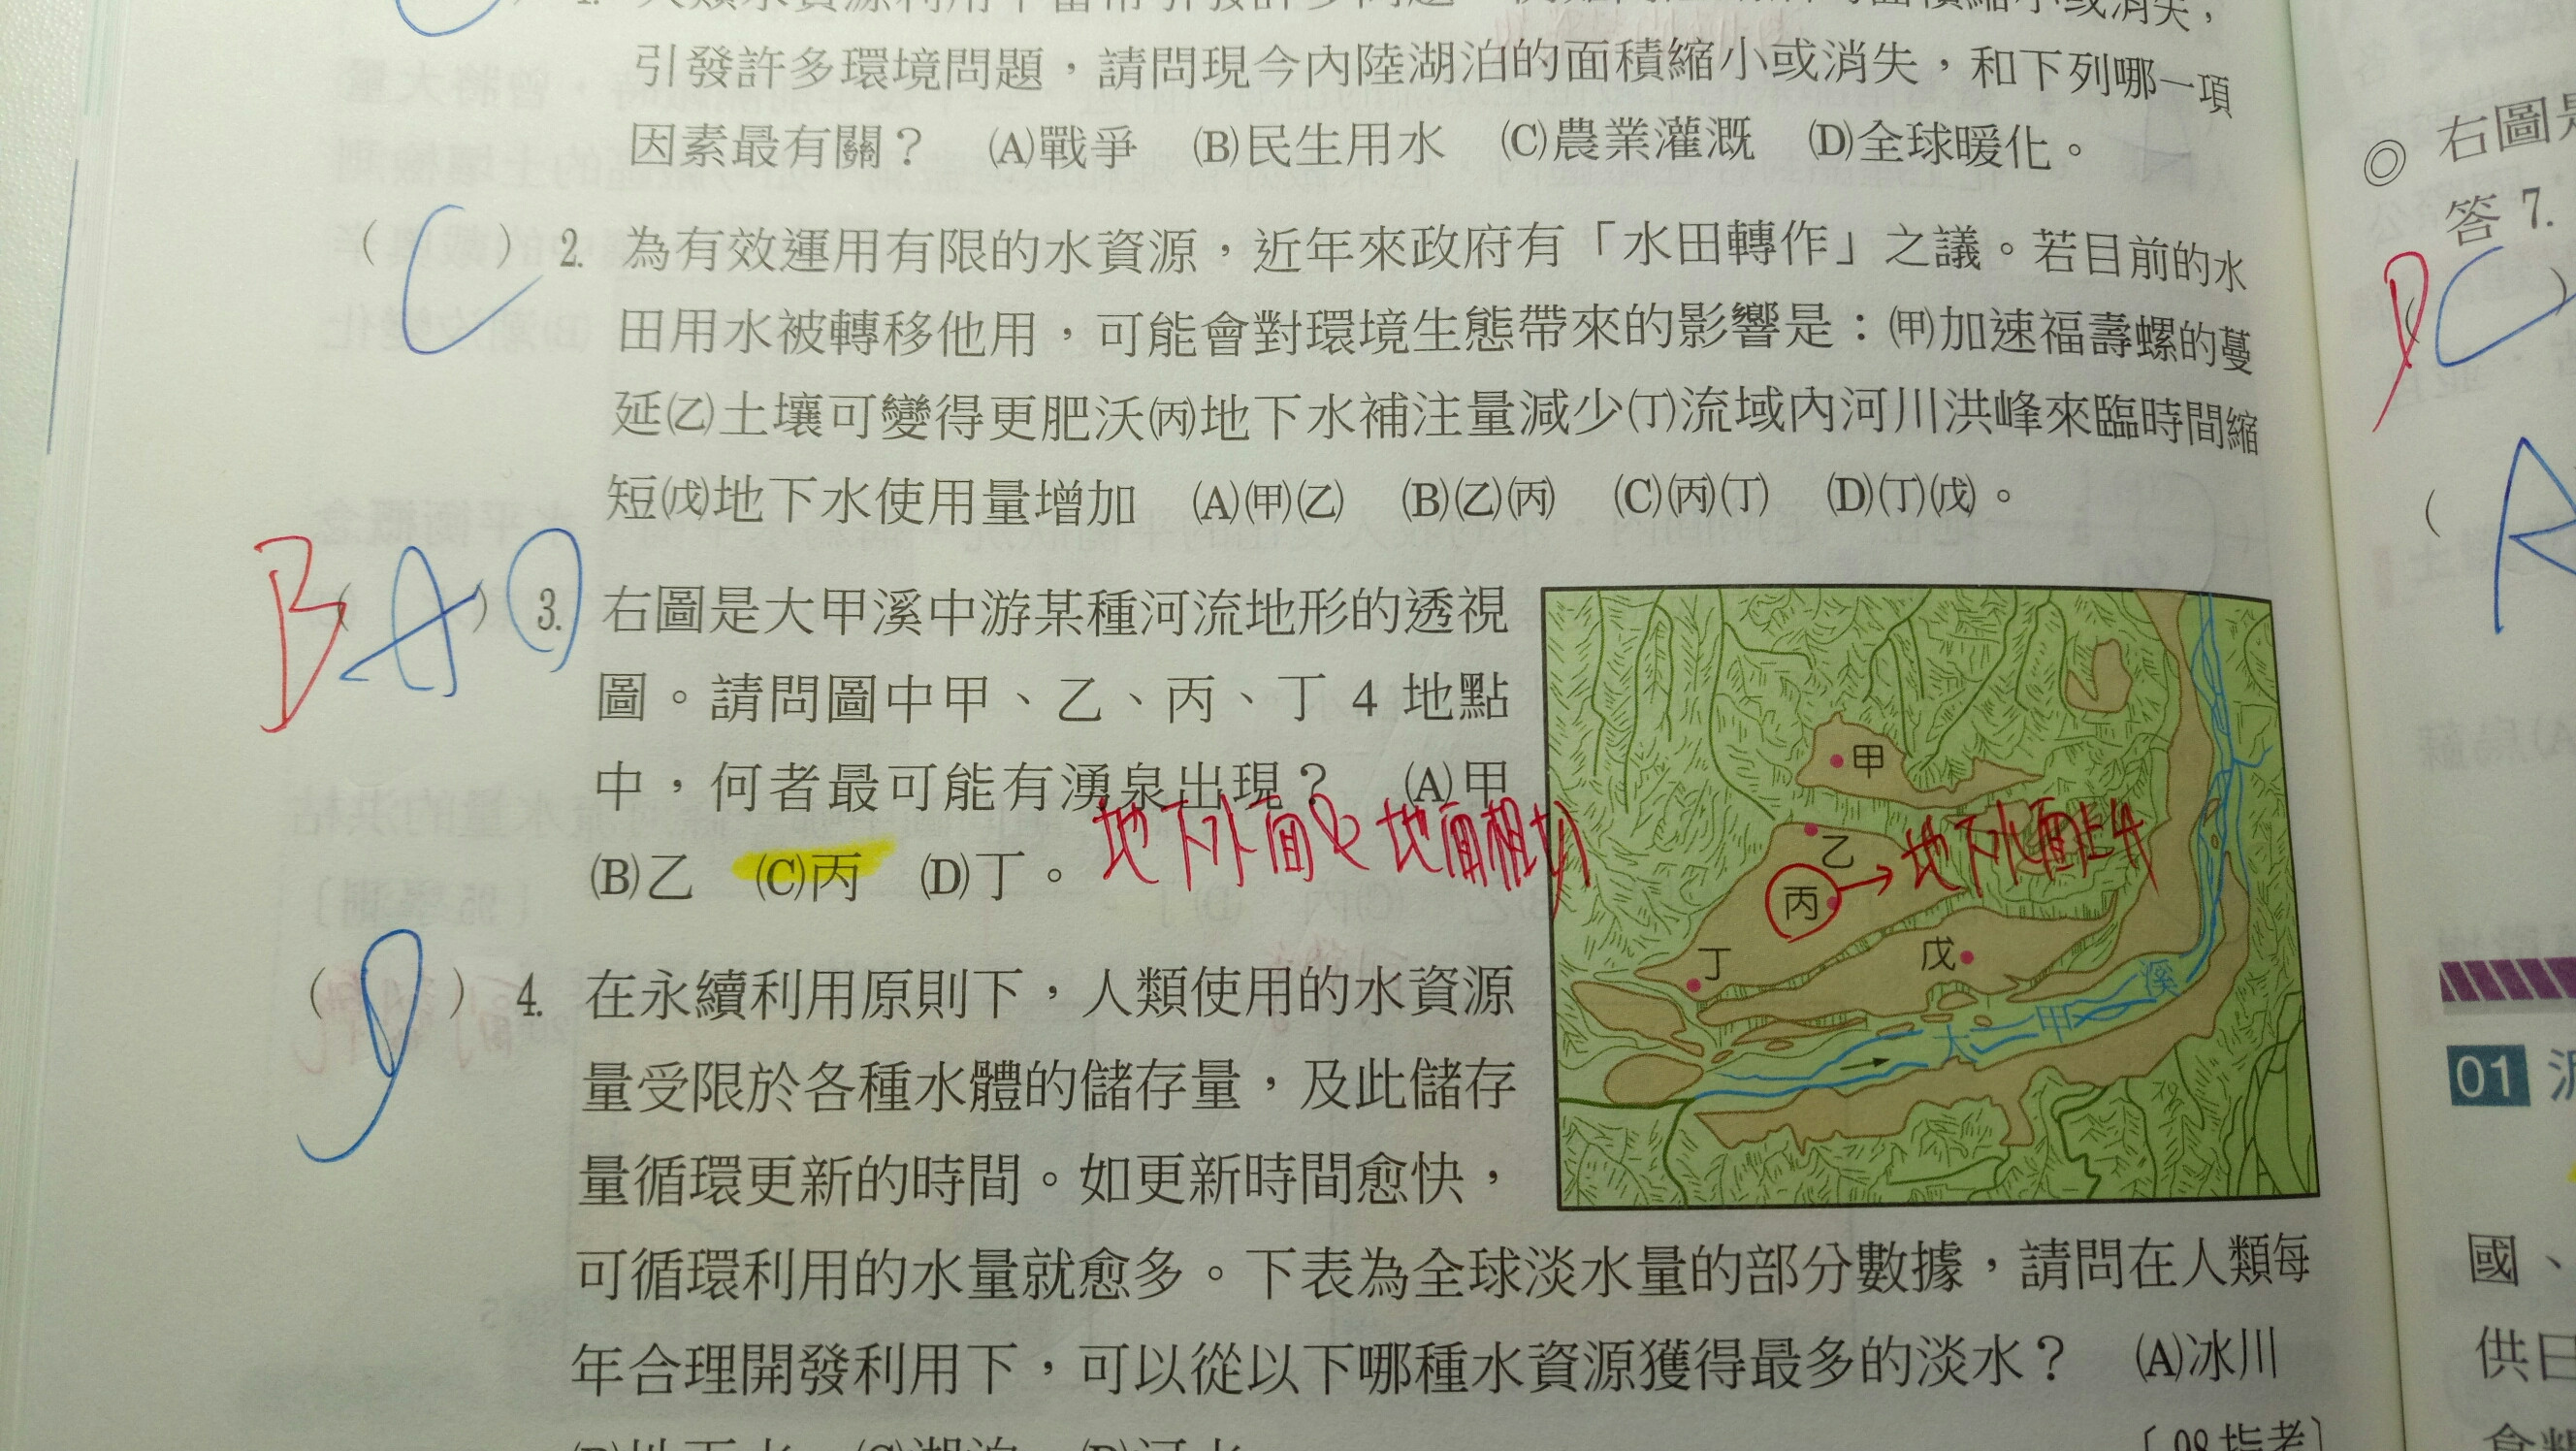 引發許多環境問題，請問現今內陸湖泊的面積縮小或消失，和下列哪一項
因素最有關？　(A)戰爭　(B)民生用水　(C)農業灌溉　(D)全球暖化。
( C ) 2. 為有效運用有限的水資源，近年來政府有「水田轉作」之議。若目前的水
田用水被轉移他用，可能會對環境生態帶來的影響是：(甲)加速福壽螺的蔓
延(乙)土壤可變得更肥沃(丙)地下水補注量減少(丁)流域內河川洪峰來臨時間縮
短(戊)地下水使用量增加　(A)(甲)(乙)　(B)(乙)(丙)　(C)(丙)(丁)　(D)(丁)(戊)。
B ( A ) 3. 右圖是大甲溪中游某種河流地形的透視
圖。請問圖中甲、乙、丙、丁 4 地點
中，何者最可能有湧泉出現？　(A)甲
(B)乙　(C)丙　(D)丁。
地下水面&地面相切
甲
乙
丙
地下水面上升
丁
戊
大甲溪
( D ) 4. 在永續利用原則下，人類使用的水資源
量受限於各種水體的儲存量，及此儲存
量循環更新的時間。如更新時間愈快，
可循環利用的水量就愈多。下表為全球淡水量的部分數據，請問在人類每
年合理開發利用下，可以從以下哪種水資源獲得最多的淡水？　(A)冰川
(B)地下水　(C)湖泊　(D)河水
〔98指考〕
◎ 右圖是
答 7.
C
( A
01
國、
供日